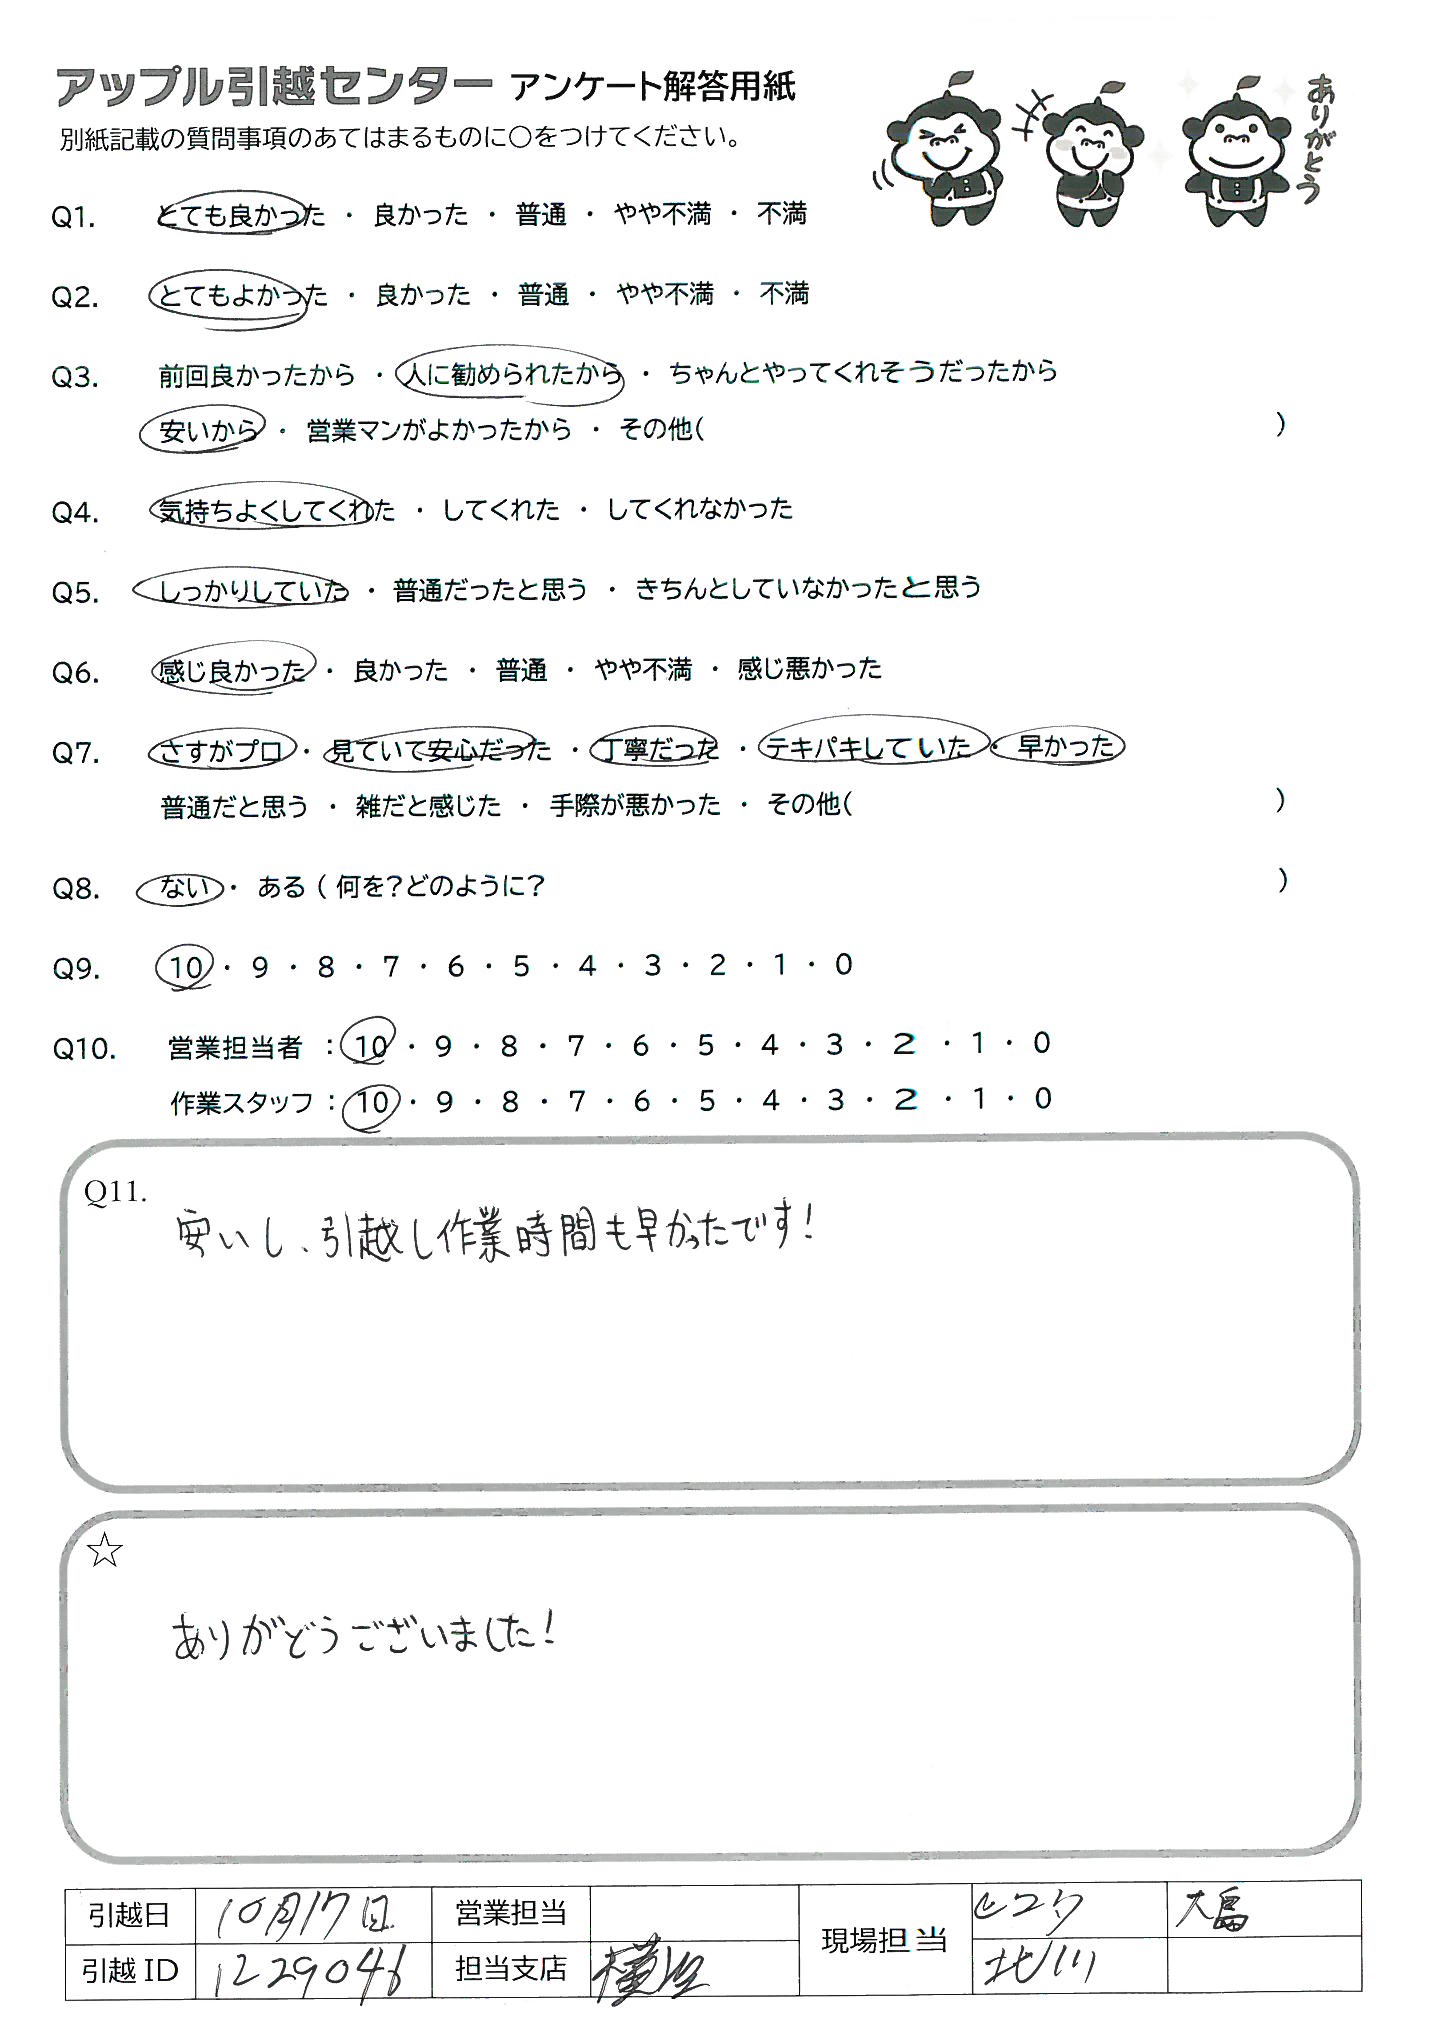 アップル引越センター アンケート解答用紙
ありがとう
別紙記載の質問事項のあてはまるものに○をつけてください。
Q1. とても良かった ・ 良かった ・ 普通 ・ やや不満 ・ 不満
Q2. とてもよかった ・ 良かった ・ 普通 ・ やや不満 ・ 不満
Q3. 前回良かったから ・ 人に勧められたから ・ ちゃんとやってくれそうだったから
安いから ・ 営業マンがよかったから ・ その他( )
Q4. 気持ちよくしてくれた ・ してくれた ・ してくれなかった
Q5. しっかりしていた ・ 普通だったと思う ・ きちんとしていなかったと思う
Q6. 感じ良かった ・ 良かった ・ 普通 ・ やや不満 ・ 感じ悪かった
Q7. さすがプロ ・ 見ていて安心だった ・ 丁寧だった ・ テキパキしていた ・ 早かった
普通だと思う ・ 雑だと感じた ・ 手際が悪かった ・ その他( )
Q8. ない ・ ある ( 何を?どのように? )
Q9. 10 ・ 9 ・ 8 ・ 7 ・ 6 ・ 5 ・ 4 ・ 3 ・ 2 ・ 1 ・ 0
Q10. 営業担当者 : 10 ・ 9 ・ 8 ・ 7 ・ 6 ・ 5 ・ 4 ・ 3 ・ 2 ・ 1 ・ 0
作業スタッフ : 10 ・ 9 ・ 8 ・ 7 ・ 6 ・ 5 ・ 4 ・ 3 ・ 2 ・ 1 ・ 0
Q11.
安いし、引越し作業時間も早かったです!
☆
ありがどうございました!
引越日 10月17日 営業担当 現場担当 大畠
引越ID 1229046 担当支店 横浜 北川